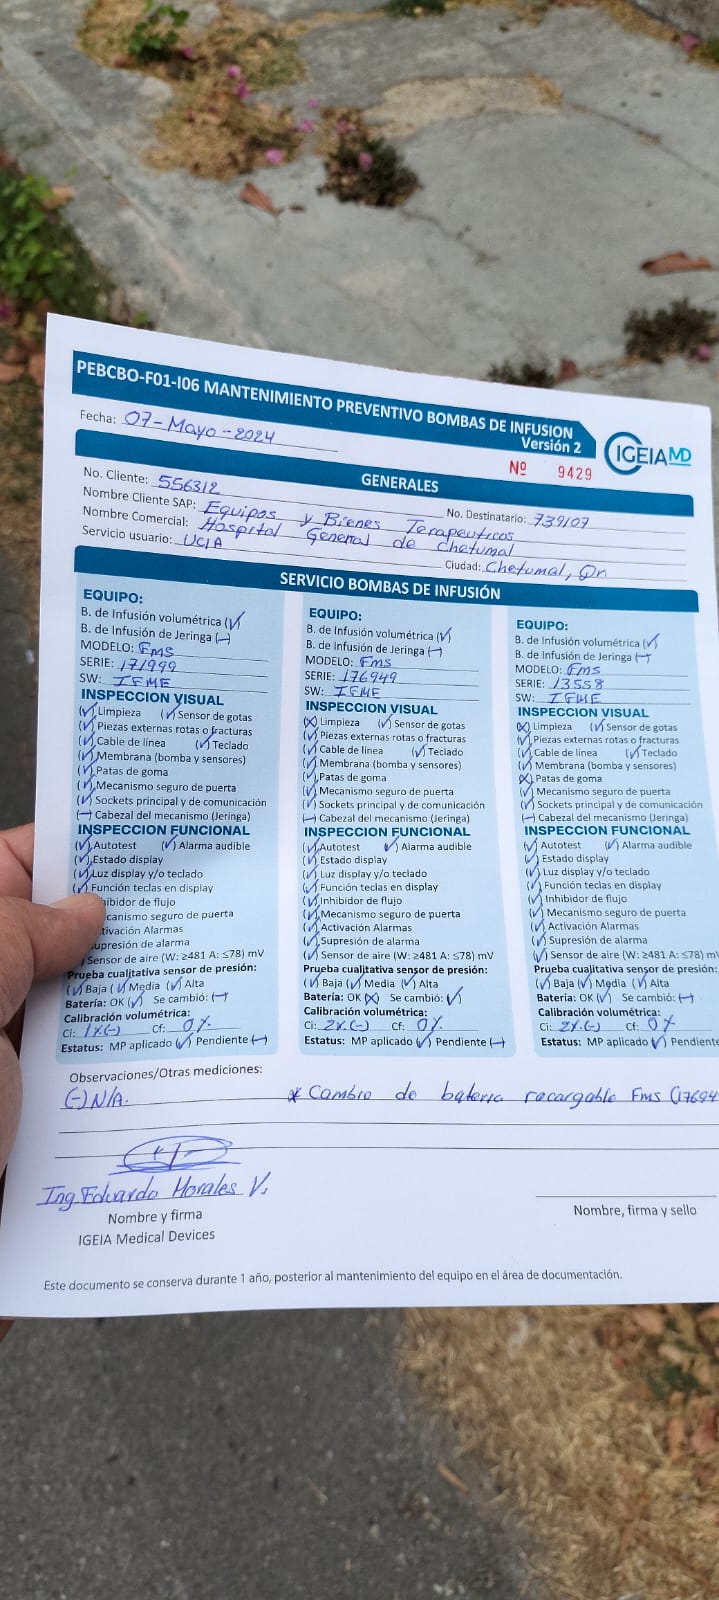 PEBCBO-F01-I06 MANTENIMIENTO PREVENTIVO BOMBAS DE INFUSION
Versión 2
IGEIA MD
Fecha: 07-Mayo-2024
Nº 9429
GENERALES
No. Cliente: 556312
No. Destinatario: 739107
Nombre Cliente SAP: Equipos y Bienes Terapeuticos
Nombre Comercial: Hospital General de Chetumal
Servicio usuario: UCIA
Ciudad: Chetumal, Qr
SERVICIO BOMBAS DE INFUSIÓN
EQUIPO:
B. de Infusión volumétrica (✓)
B. de Infusión de Jeringa (-)
MODELO: Fms
SERIE: 171999
SW: IFME
INSPECCION VISUAL
(✓) Limpieza (✓) Sensor de gotas
(✓) Piezas externas rotas o fracturas
(✓) Cable de línea (✓) Teclado
(✓) Membrana (bomba y sensores)
(✓) Patas de goma
(✓) Mecanismo seguro de puerta
(✓) Sockets principal y de comunicación
(-) Cabezal del mecanismo (Jeringa)
INSPECCION FUNCIONAL
(✓) Autotest (✓) Alarma audible
(✓) Estado display
(✓) Luz display y/o teclado
(✓) Función teclas en display
hibidor de flujo
ecanismo seguro de puerta
tivación Alarmas
upresión de alarma
Sensor de aire (W: ≥481 A: ≤78) mV
Prueba cualitativa sensor de presión:
(✓) Baja (✓) Media (✓) Alta
Batería: OK (✓) Se cambió: (-)
Calibración volumétrica:
Ci: 1%(-) Cf: 0%
Estatus: MP aplicado (✓) Pendiente (-)
EQUIPO:
B. de Infusión volumétrica (✓)
B. de Infusión de Jeringa (-)
MODELO: Fms
SERIE: 176949
SW: IFME
INSPECCION VISUAL
(X) Limpieza (✓) Sensor de gotas
(✓) Piezas externas rotas o fracturas
(✓) Cable de línea (✓) Teclado
(✓) Membrana (bomba y sensores)
(✓) Patas de goma
(✓) Mecanismo seguro de puerta
(✓) Sockets principal y de comunicación
(-) Cabezal del mecanismo (Jeringa)
INSPECCION FUNCIONAL
(✓) Autotest (✓) Alarma audible
(✓) Estado display
(✓) Luz display y/o teclado
(✓) Función teclas en display
(✓) Inhibidor de flujo
(✓) Mecanismo seguro de puerta
(✓) Activación Alarmas
(✓) Supresión de alarma
(✓) Sensor de aire (W: ≥481 A: ≤78) mV
Prueba cualitativa sensor de presión:
(✓) Baja (✓) Media (✓) Alta
Batería: OK (X) Se cambió: (✓)
Calibración volumétrica:
Ci: 2%(-) Cf: 0%
Estatus: MP aplicado (✓) Pendiente (-)
EQUIPO:
B. de Infusión volumétrica (✓)
B. de Infusión de Jeringa (-)
MODELO: Fms
SERIE: 13558
SW: IFME
INSPECCION VISUAL
(X) Limpieza (✓) Sensor de gotas
(✓) Piezas externas rotas o fracturas
(✓) Cable de línea (✓) Teclado
(✓) Membrana (bomba y sensores)
(X) Patas de goma
(✓) Mecanismo seguro de puerta
(✓) Sockets principal y de comunicación
(-) Cabezal del mecanismo (Jeringa)
INSPECCION FUNCIONAL
(✓) Autotest (✓) Alarma audible
(✓) Estado display
(✓) Luz display y/o teclado
(✓) Función teclas en display
(✓) Inhibidor de flujo
(✓) Mecanismo seguro de puerta
(✓) Activación Alarmas
(✓) Supresión de alarma
(✓) Sensor de aire (W: ≥481 A: ≤78) m
Prueba cualitativa sensor de presión:
(✓) Baja (✓) Media (✓) Alta
Batería: OK (✓) Se cambió: (-)
Calibración volumétrica:
Ci: 2%(-) Cf: 0%
Estatus: MP aplicado (✓) Pendiente
Observaciones/Otras mediciones:
(-) N/A. * Cambio de bateria recargable Fms (17694
Ing Eduardo Morales V.
Nombre y firma
IGEIA Medical Devices
Nombre, firma y sello
Este documento se conserva durante 1 año, posterior al mantenimiento del equipo en el área de documentación.